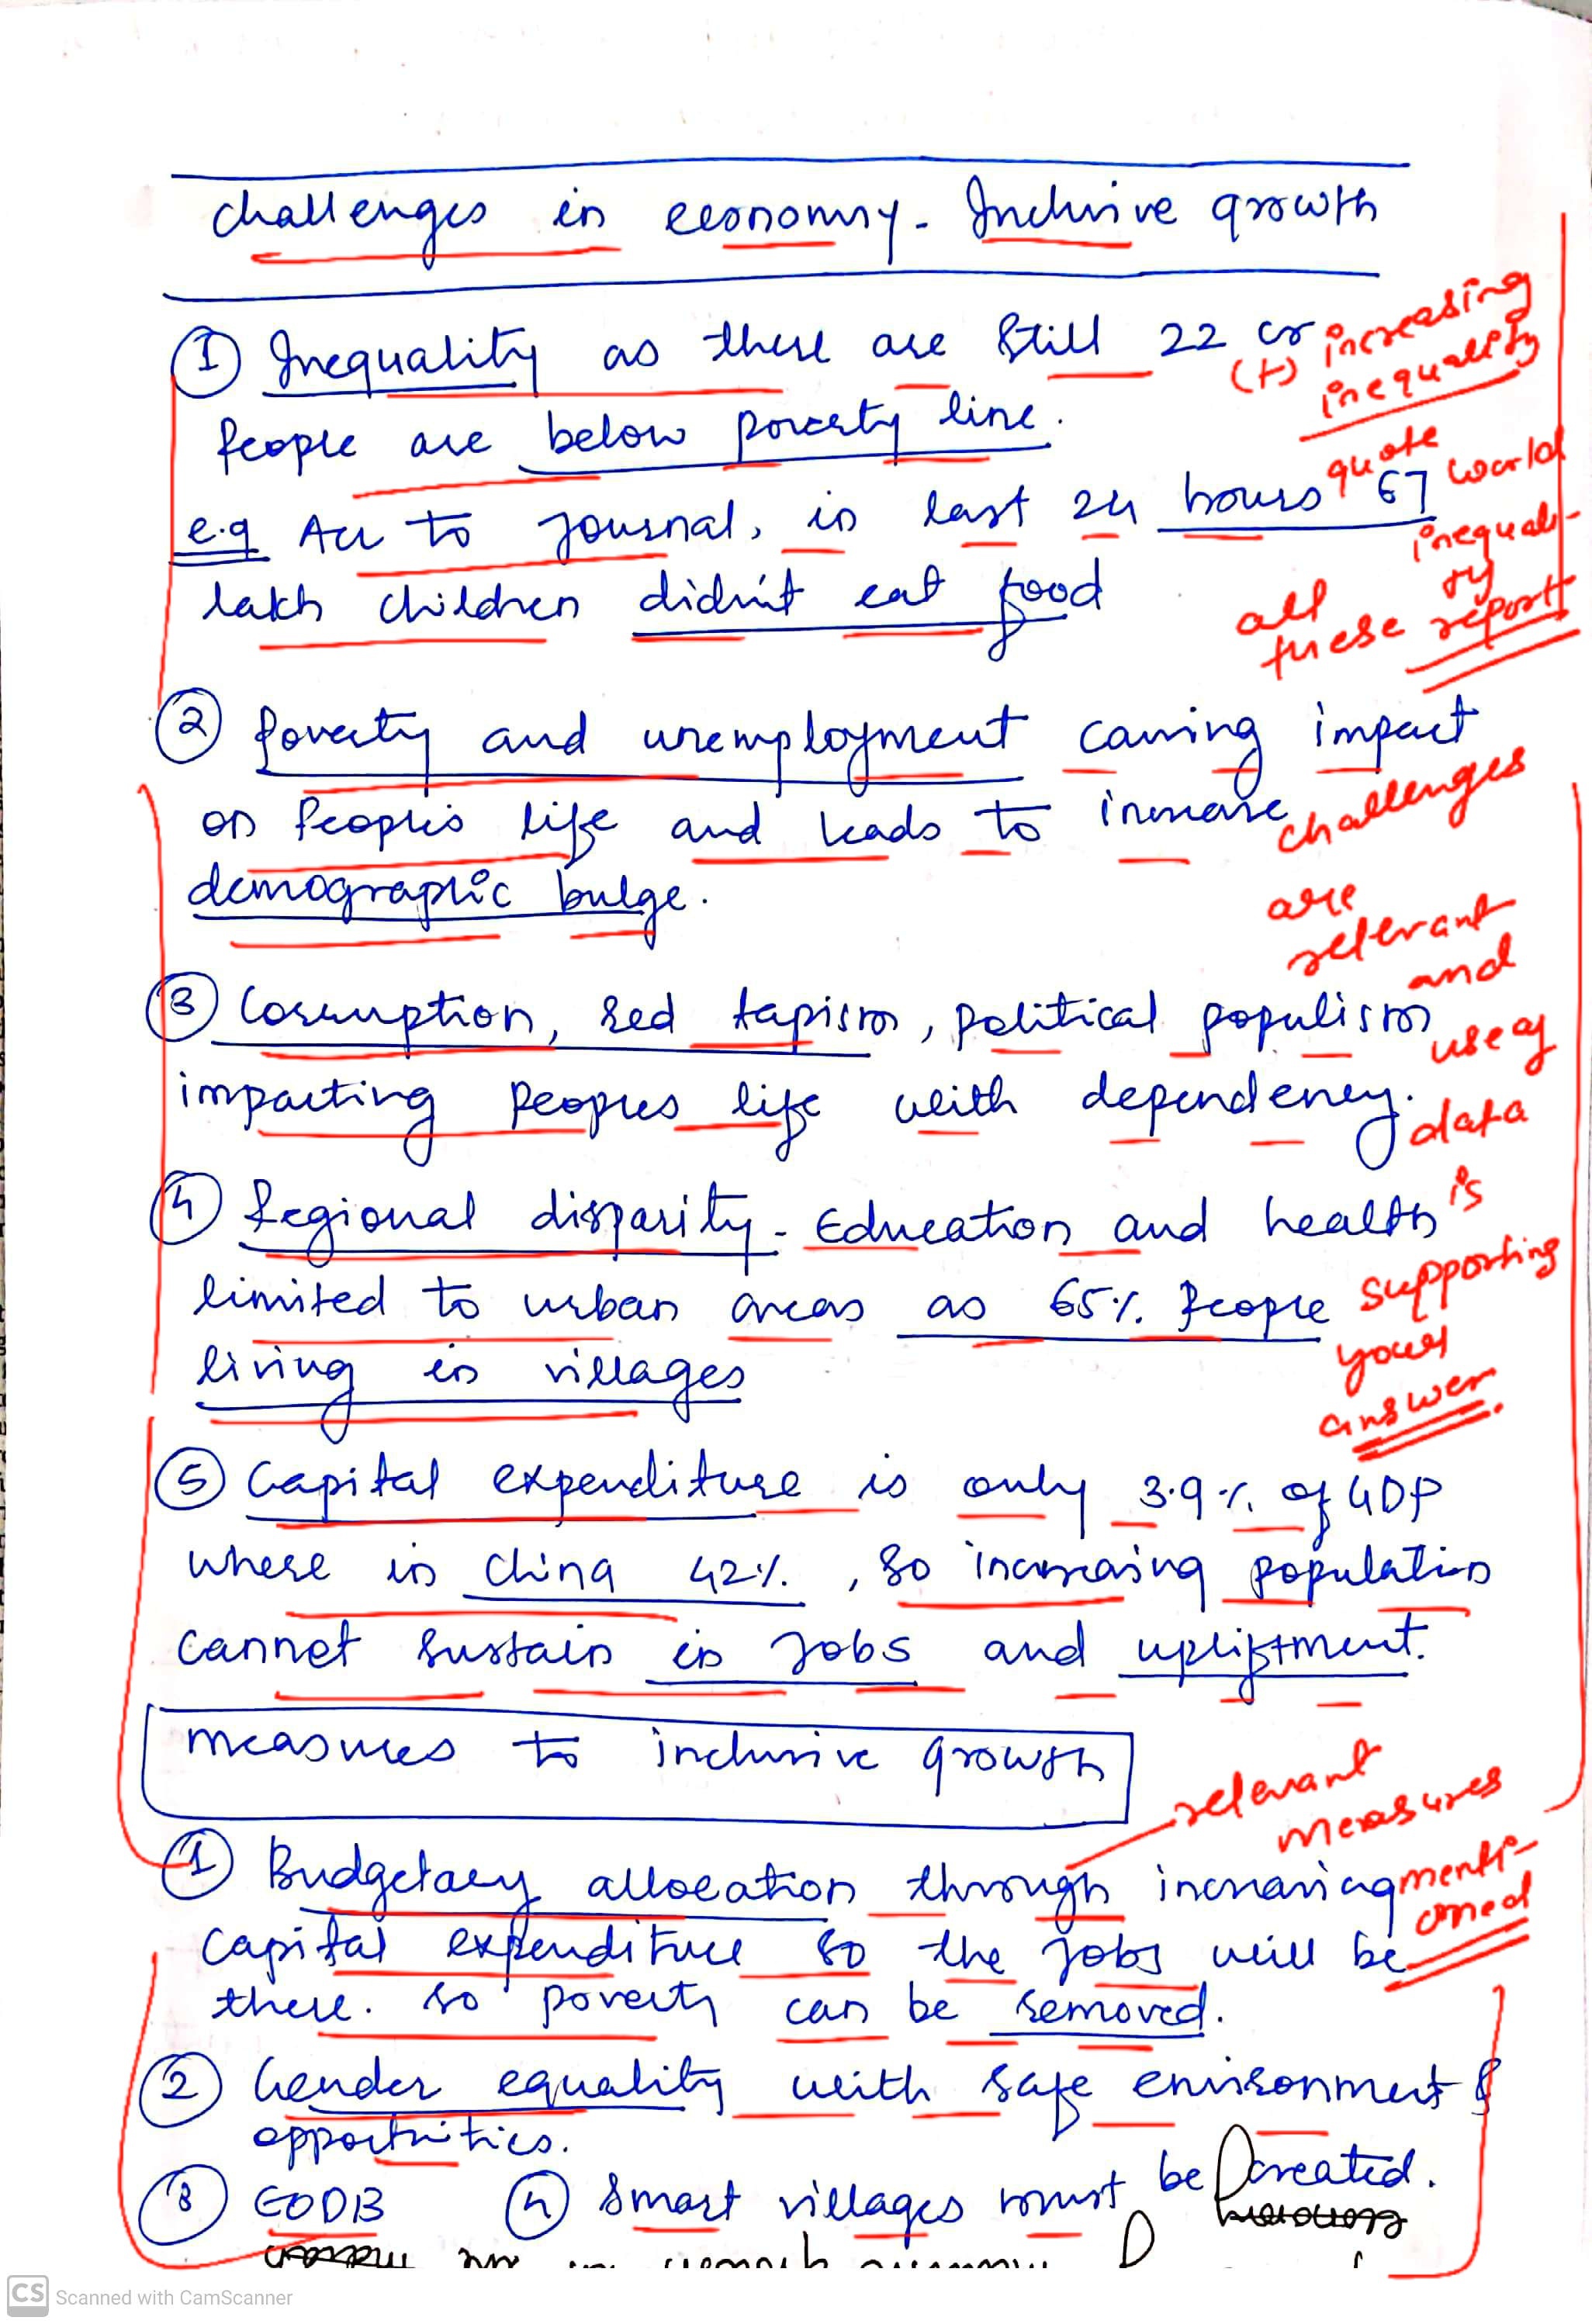 challenges in economy - Inclusive growth
① Inequality as there are still 22 cr
People are below poverty line.
(+) increasing
inequality
quote world
inequali-
ty
report
e.g Acc to journal, in last 24 hours 67
lakh children didn't eat food
all
these
② Poverty and unemployment causing impact
on People's life and leads to increase
demographic bulge.
challenges
are
relevant
and
use of
data
is
supporting
your
answer
③ Corruption, red tapism, political populism
impacting peoples life with dependency.
④ Regional disparity - Education and health
limited to urban areas as 65% People
living in villages
⑤ Capital expenditure is only 3.9% of GDP
where in China 42%, so increasing population
cannot sustain in jobs and upliftment.
measures to inclusive growth
relevant
measures
menti-
oned
① Budgetary allocation through increasing
capital expenditure so the jobs will be
there. so poverty can be removed.
② Gender equality with safe environment &
opportunities.
③ EODB ④ Smart villages must be created.
CS Scanned with CamScanner